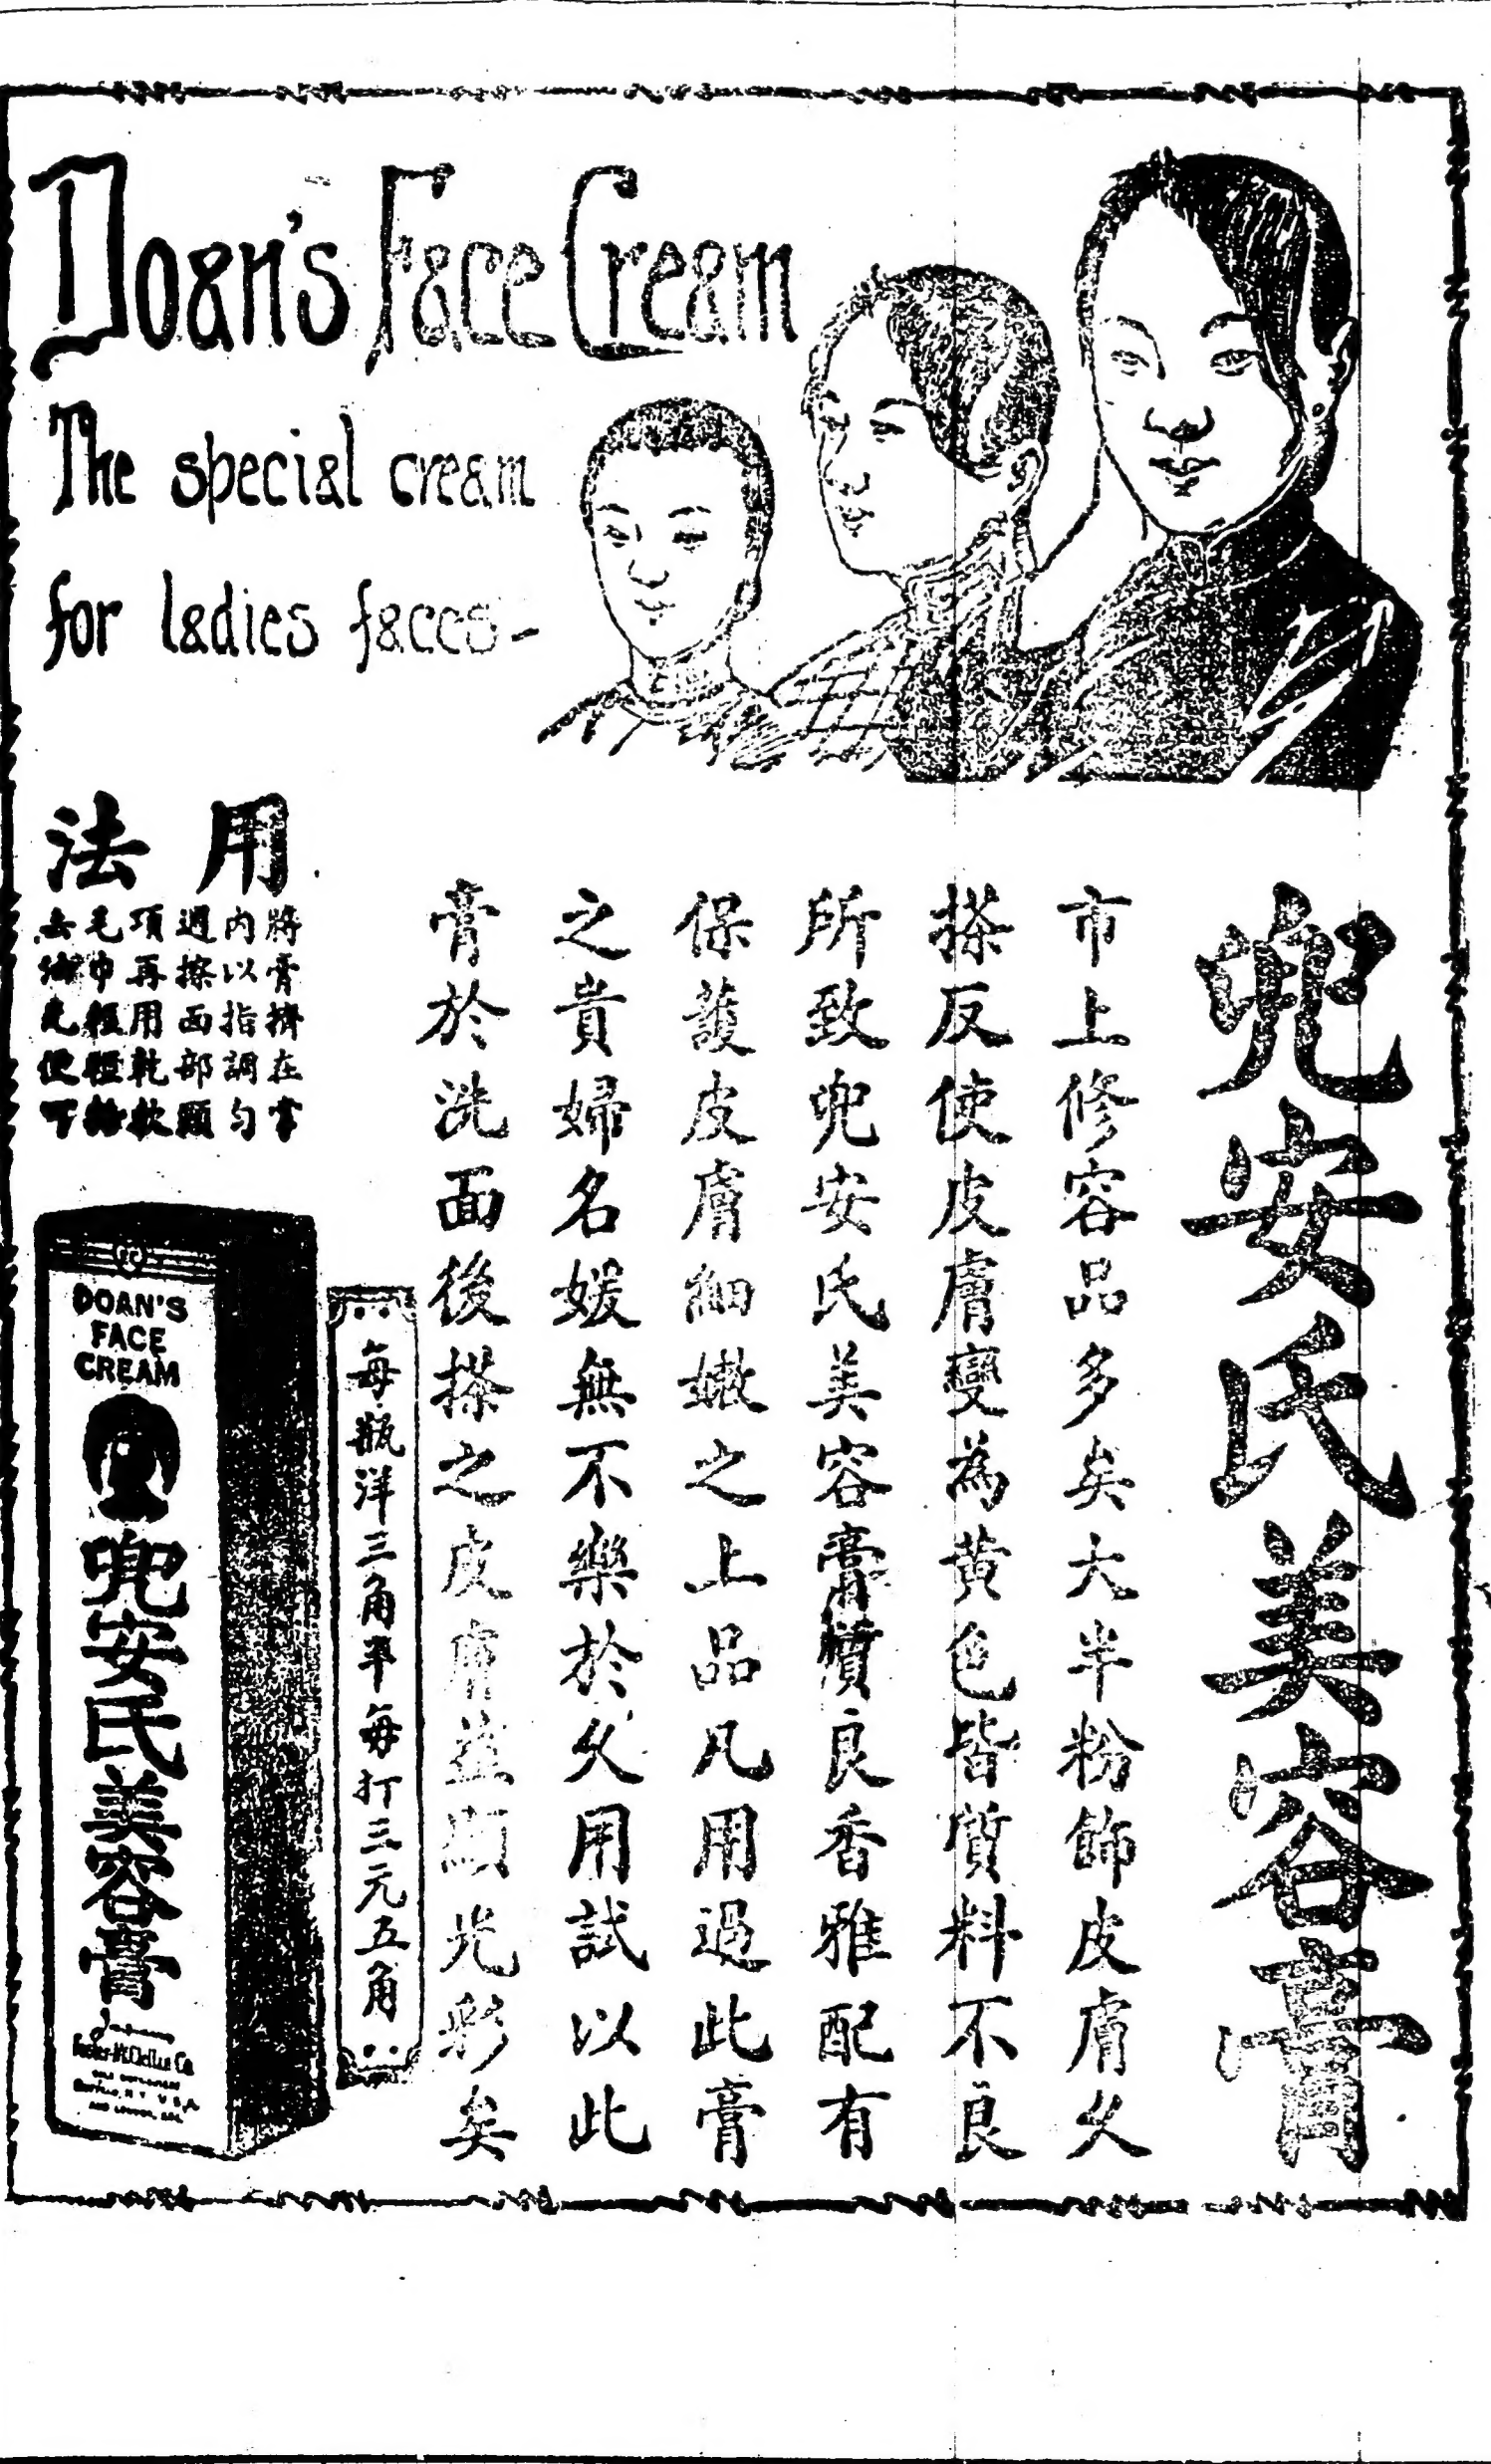 Doan's Face Cream
The special cream
for ladies faces-
兜安氏美容膏
市上修容品多矣大半粉飾皮膚久
搽反使皮膚變為黄色皆質料不良
所致兜安氏美容膏質良香雅配有
保護皮膚細嫩之上品凡用過此膏
之貴婦名媛無不樂於久用試以此
膏於洗面後搽之皮膚並顯光彩矣
用法
將膏擠在掌
內以指調勻
遍擦面部顯
項再用乾軟
毛巾輕輕
去
每瓶洋三角半每打三元五角
DOAN'S
FACE
CREAM
兜安氏美容膏
Foster-McClellan Co.
BUFFALO, N.Y. U.S.A.
AND LONDON, ENG.